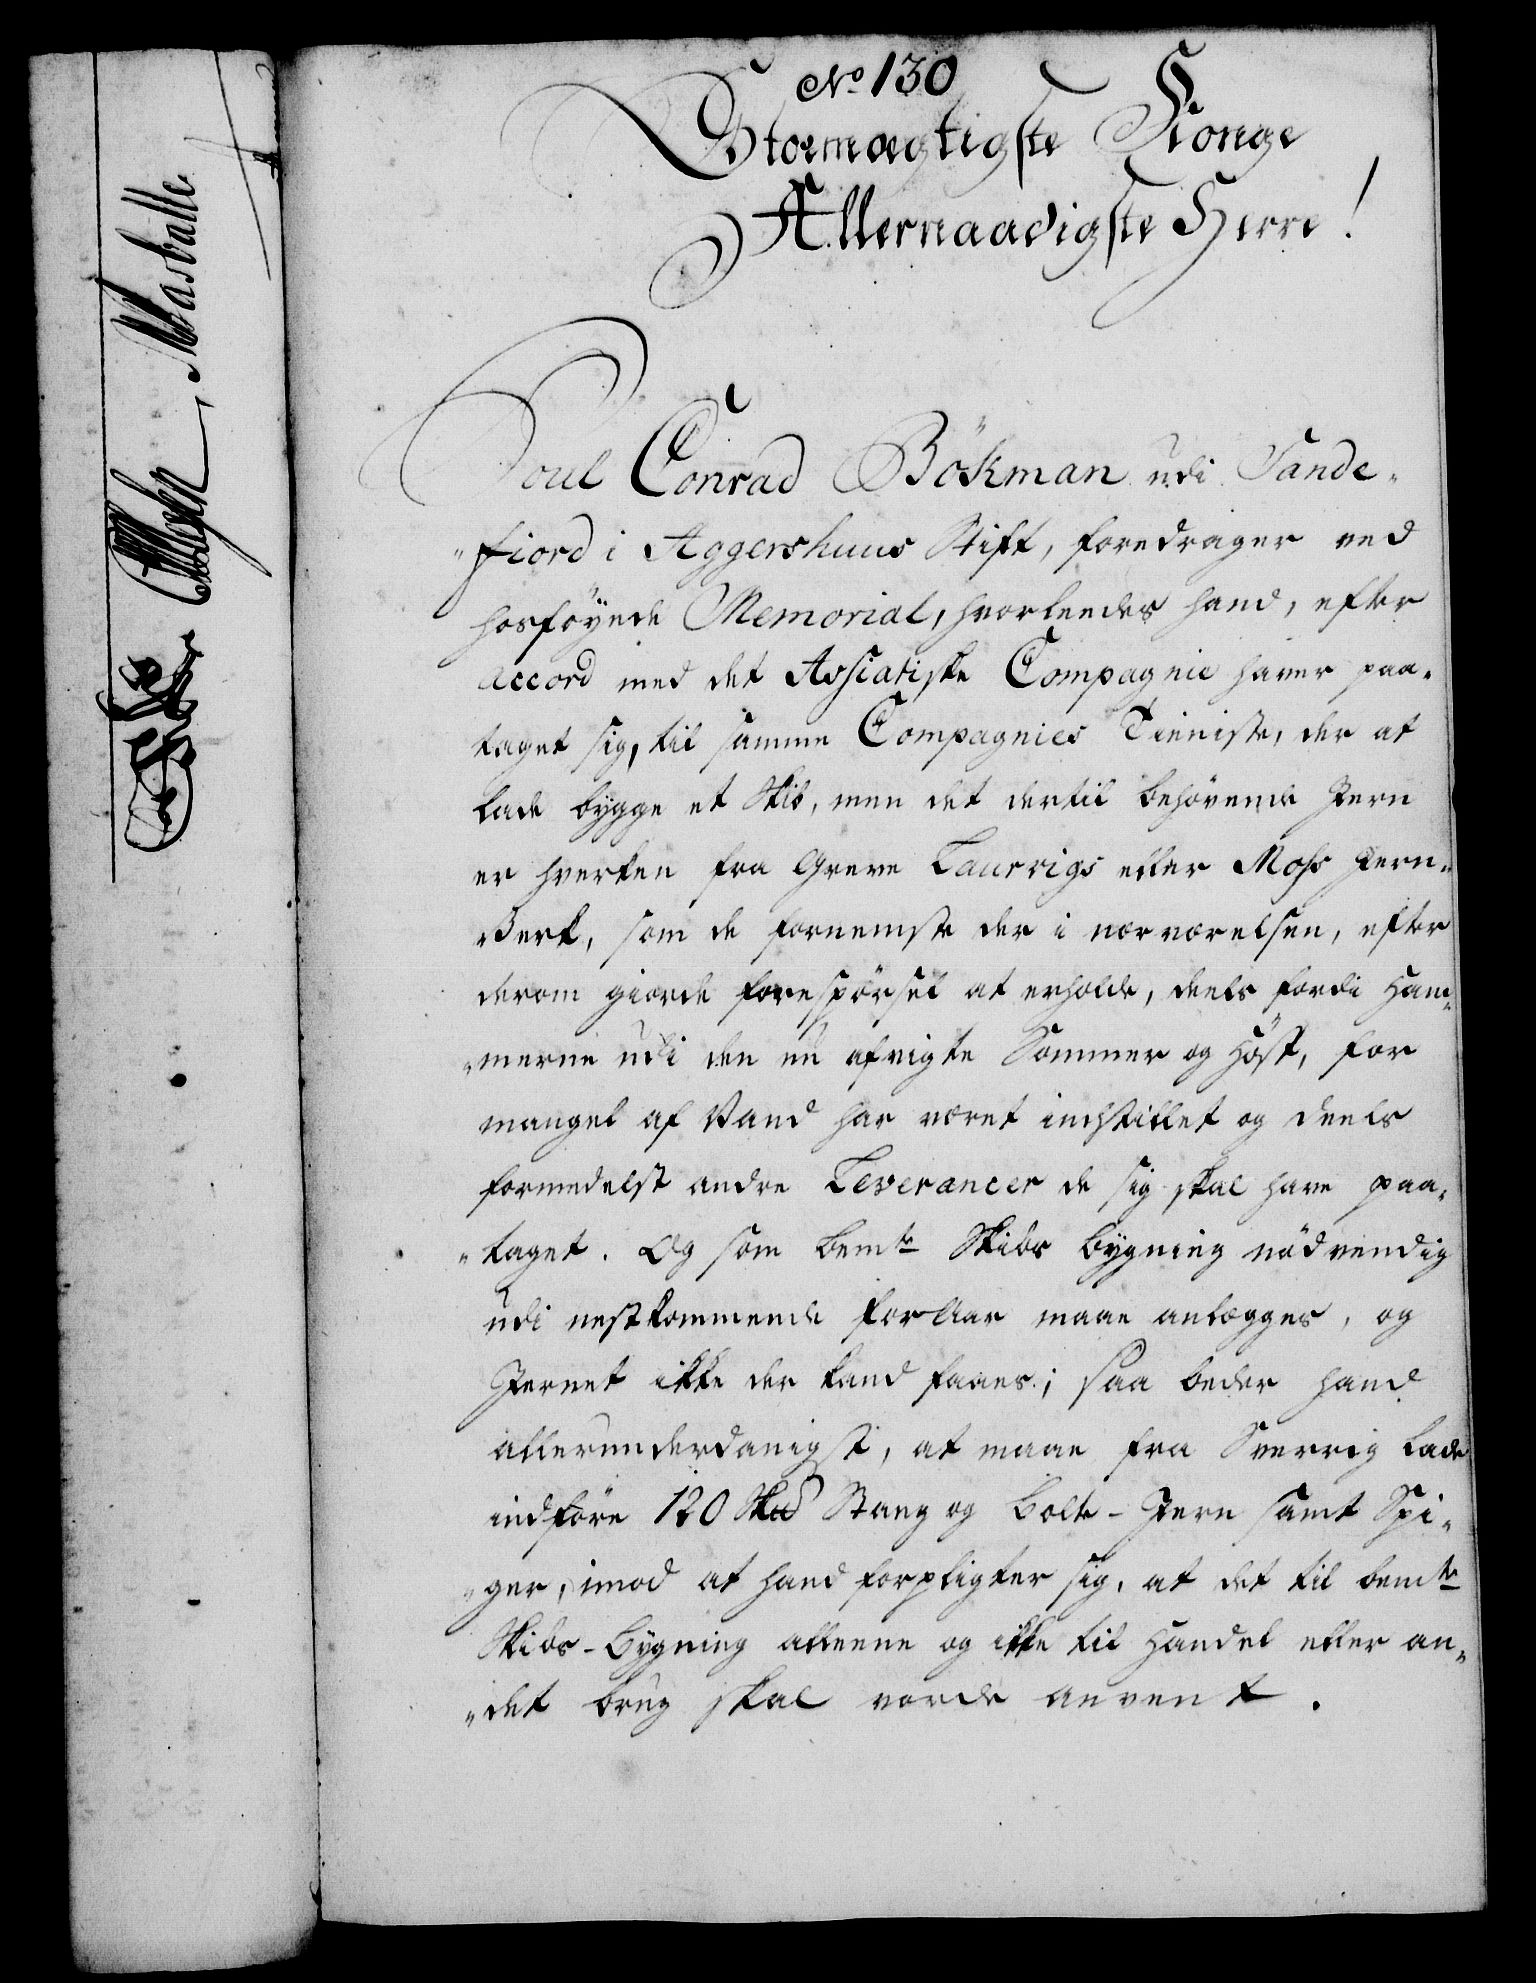 No 130
Stormægtigste Konge
Allernaadigste Herre!
Poul Conrad Bökman udi Sande-
fiord i Aggershuus Stift, foredrager ved
hosföyede Memorial, hvorleedes hand, efter
accord med det Assiatiske Compagnie haver paa-
taget sig, til samme Compagnies Tieniste, der at
lade bygge et Skib, men det dertil behövende Jern
er hverken fra Greve Laurvigs eller Moss Jern-
Verk, som de fornemste der i nærværelsen, efter
derom giorde forespörsel at erholde, deels fordi Ham-
merne udi den nu afvigte Sommer og Höst, for
mangel af Vand har været indstillet og deels
formedelst andre Leverancer de sig skal have paa-
taget. Og som bemte Skibs bygning nödvendig
udi nestkommende For Aar maae anlægges, og
Jernet ikke der kand faaes; saa beder hand
allerunderdanigst, at maae fra Sverrig lade
indföre 120 Skd Stang og Bolte-Jern samt Spi-
ger, imod at hand forpligter sig, at det til bemte
Skibs-Bygning alleene og ikke til Handel eller an-
det brug skal vorde anvent.